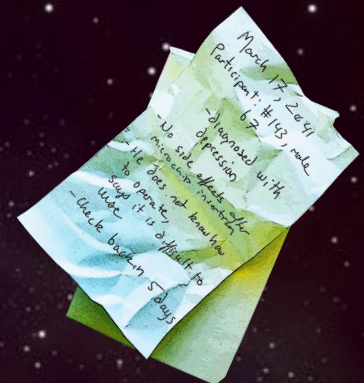 March 17, 2041
Participant: #143, male
62
-diagnosed with
depression
-No side effects after
microchip insertion
-He does not know how
to operate,
says it is difficult to
use
-Check back in 5 days